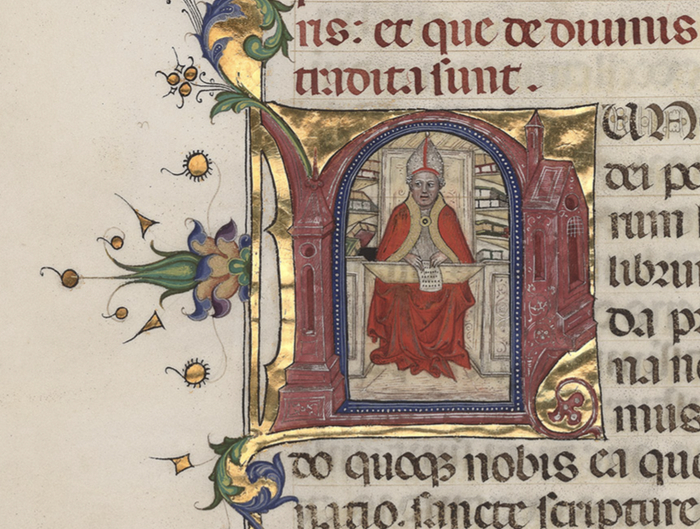 ris: et que de diuinis
tradita sunt.
dei pe
rum
libru
da p
na n
mus
do quoqꝫ nobis ea qu
natio. sancte scripture